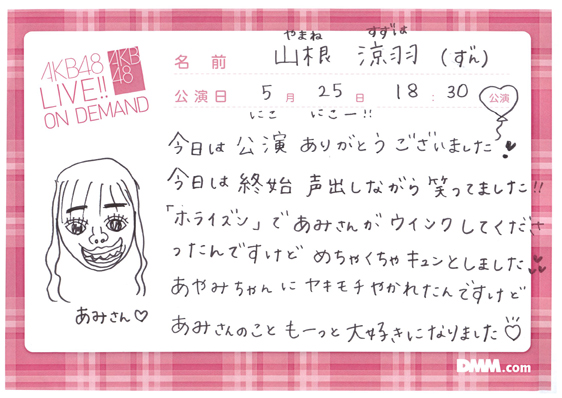 AKB48
LIVE!!
ON DEMAND
AKB
48
やまね すずは
名前 山根 涼羽 (ずん)
公演日 5月 25日 18:30 公演
にこ にこー!!
今日は 公演 ありがとう ございました
今日は 終始 声出しながら 笑ってました!!
「ホライズン」で あみさんが ウインクしてくださ
ったんですけど めちゃくちゃ キュンとしました
あやみちゃんに ヤキモチやかれたんですけど
あみさんのこと もーっと 大好きになりました♡
あみさん♡
DMM.com